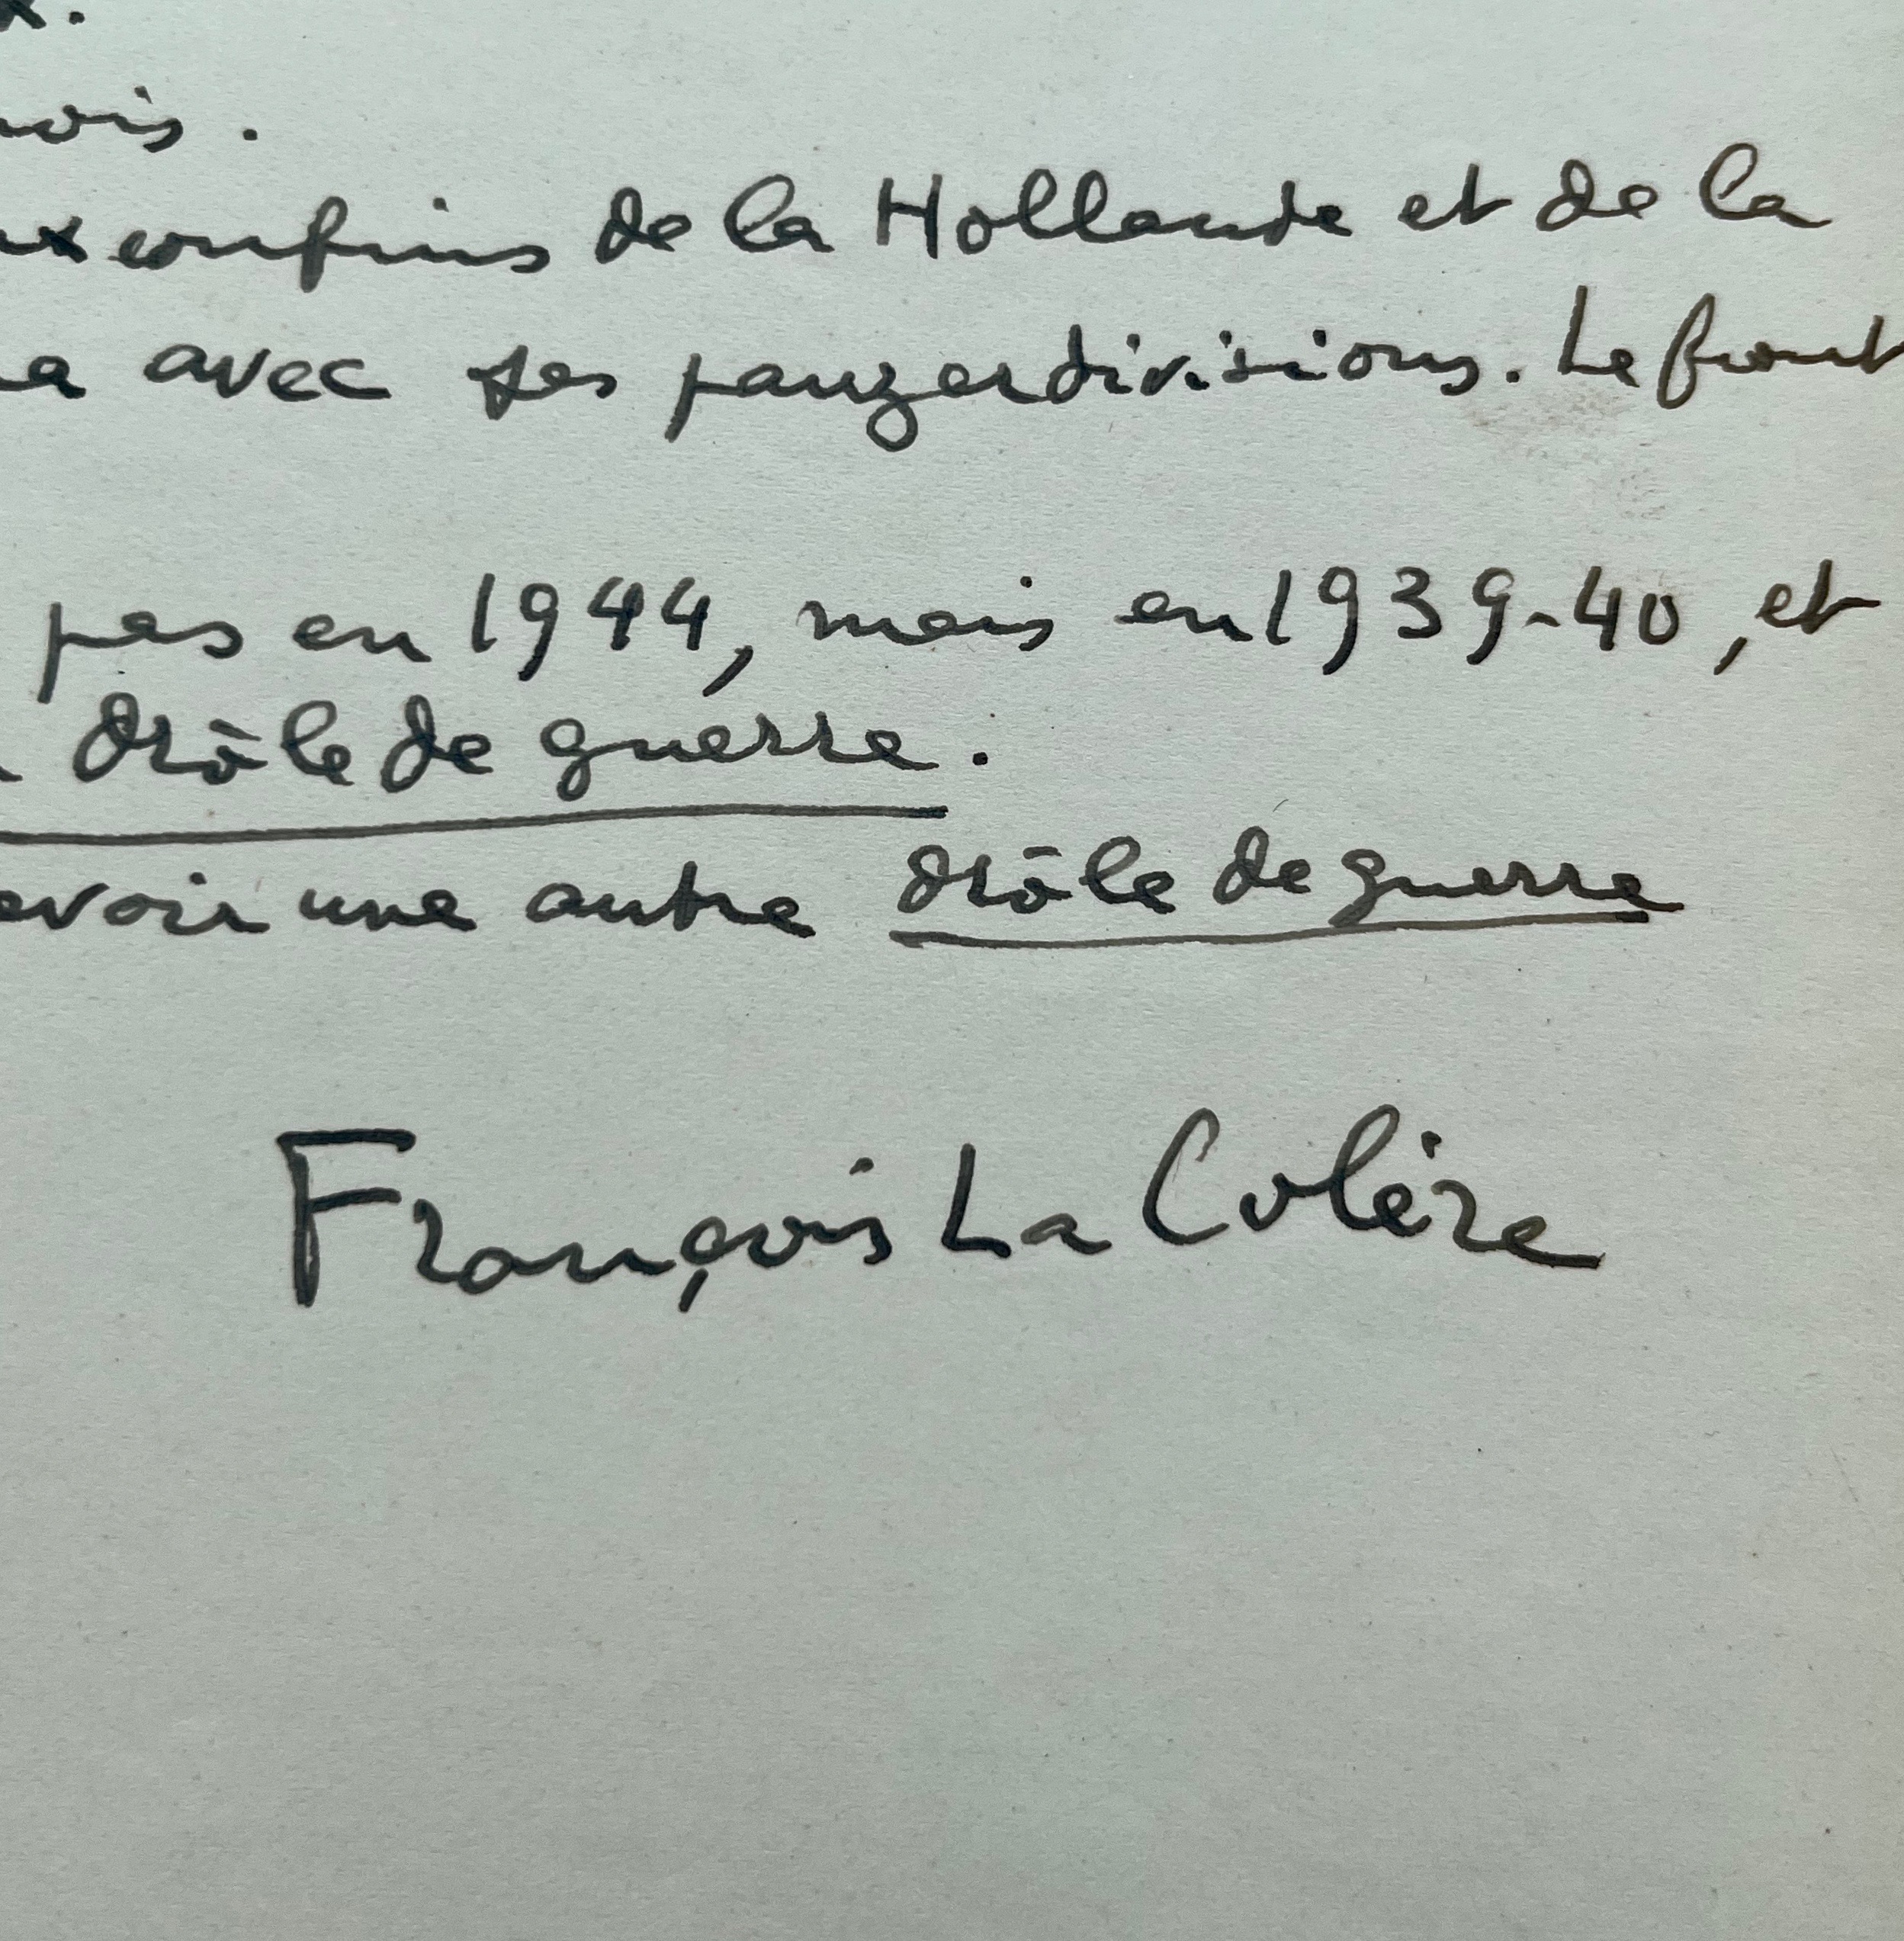 x.
ois.
ux confins de la Hollande et de la
a avec ses panzerdivisions. Le front
pas en 1944, mais en 1939-40, et
drôle de guerre.
avoir une autre drôle de guerre
François La Colère